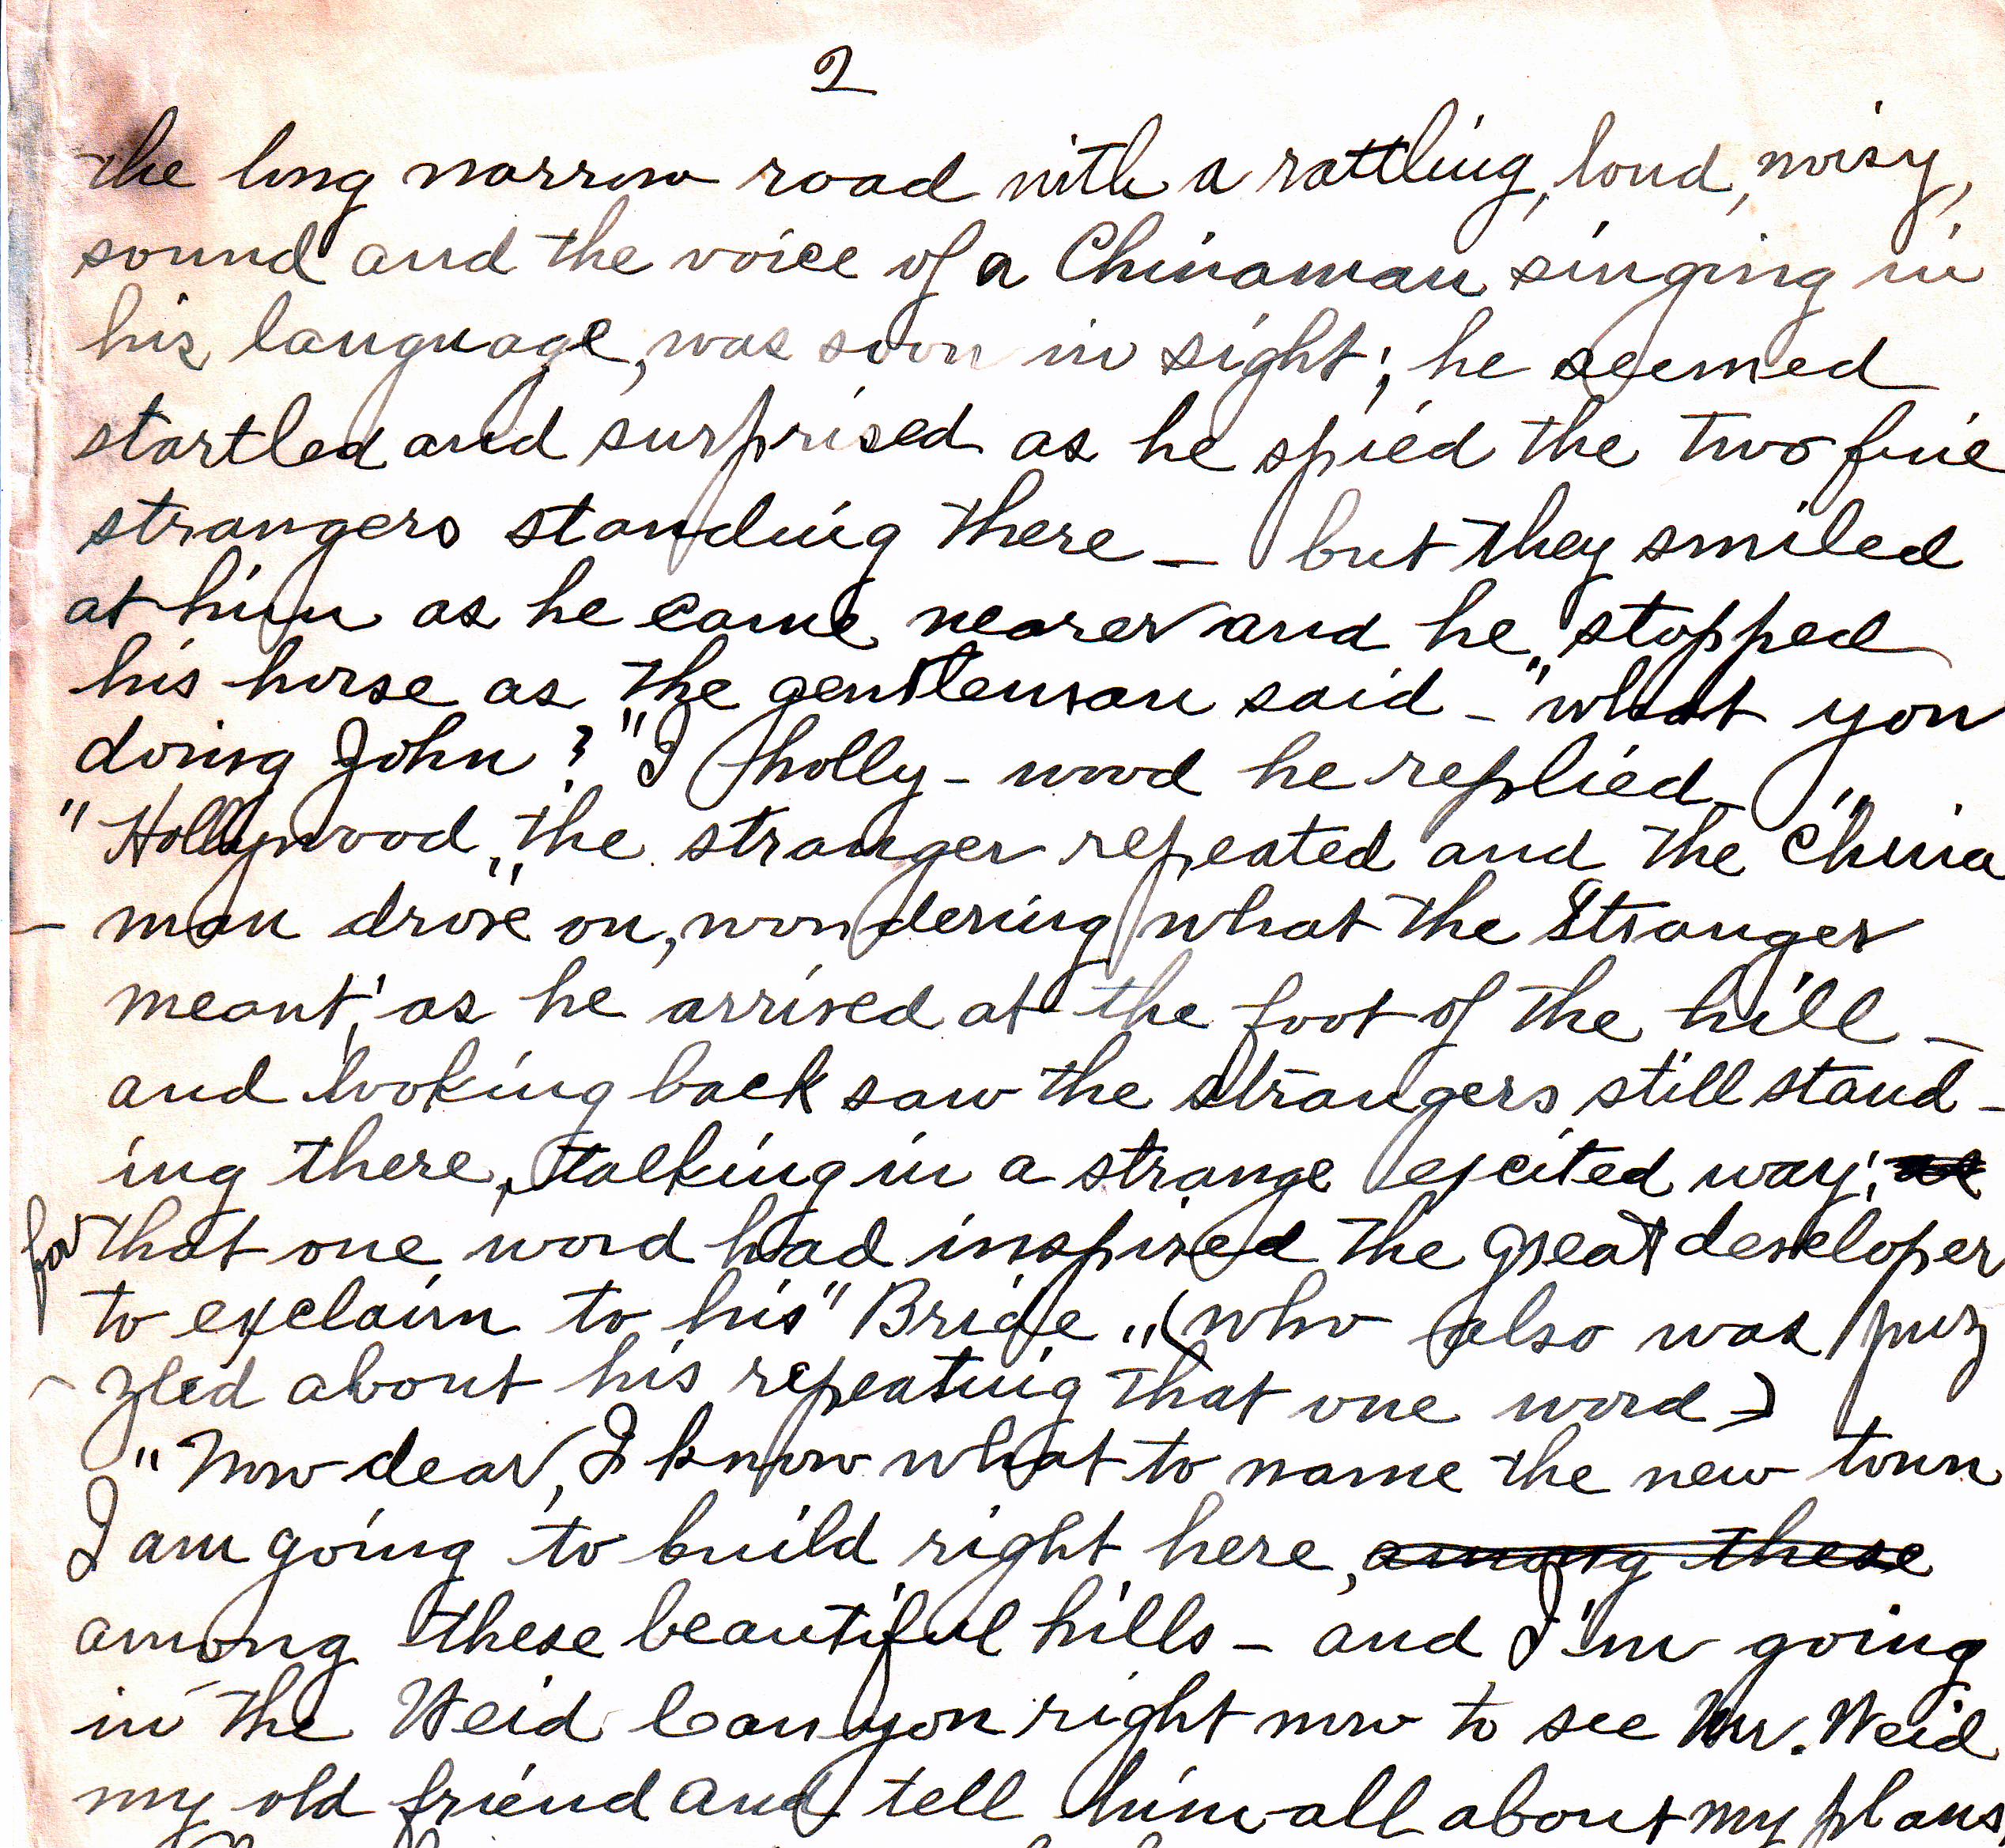 2
the long narrow road with a rattling, loud, noisy,
sound and the voice of a Chinaman singing in
his language, was soon in sight; he seemed
startled and surprised as he spied the two fine
strangers standing there – but they smiled
at him as he came nearer and he stopped
his horse as "the gentleman said – "what you
doing John?" I holly-wood he replied –
"Hollywood," the stranger repeated and the China
- man drove on, wondering what the stranger
meant; as he arrived at the foot of the hill –
and looking back saw the strangers still stand-
ing there, talking in a strange excited way;
for that one word had inspired the great developer
to exclaim to his "Bride" (who also was puz
- zled about his repeating that one word)
"Now dear, I know what to name the new town
I am going to build right here, among these
among these beautiful hills – and I'm going
in the Weid Canyon right now to see Mr. Weid
my old friend and tell him all about my plans